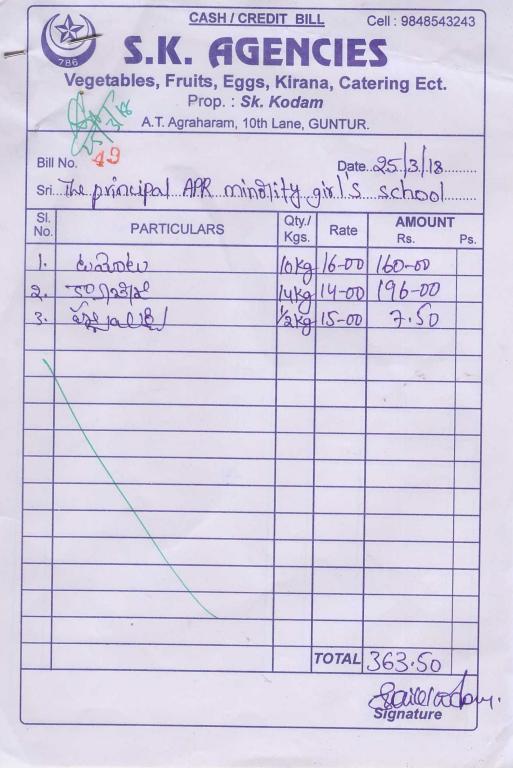 CASH / CREDIT BILL
Cell : 9848543243
786
S.K. AGENCIES
Vegetables, Fruits, Eggs, Kirana, Catering Ect.
Prop. : Sk. Kodam
A.T. Agraharam, 10th Lane, GUNTUR.
25/3/18
Bill No. 49 Date 25/3/18
Sri. The principal APR minority girl's school
Sl. No. PARTICULARS Qty./ Kgs. Rate AMOUNT Rs. Ps.
1. టమాటట 10kg 16-00 160-00
2. 14kg 14-00 196-00
3. 1/2kg 15-00 7.50
TOTAL 363.50
Signature